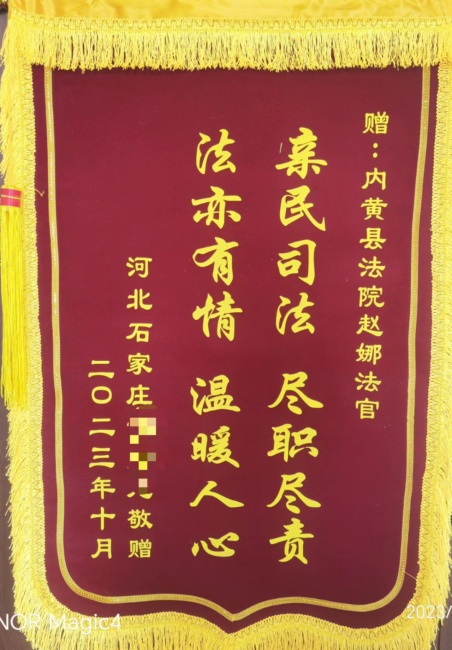 赠：内黄县法院赵娜法官
亲民司法 尽职尽责
法亦有情 温暖人心
河北石家庄
敬赠
二〇二三年十月
NOR Magic4
2023/